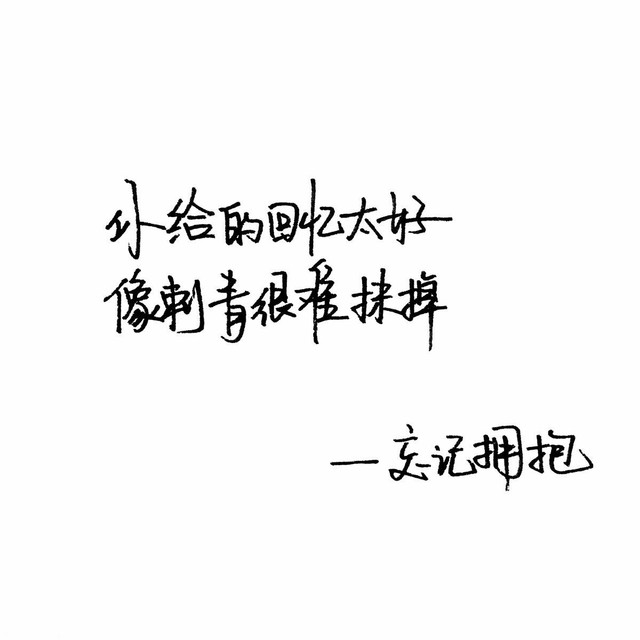 你给的回忆太好
像刺青很难抹掉
—忘记拥抱